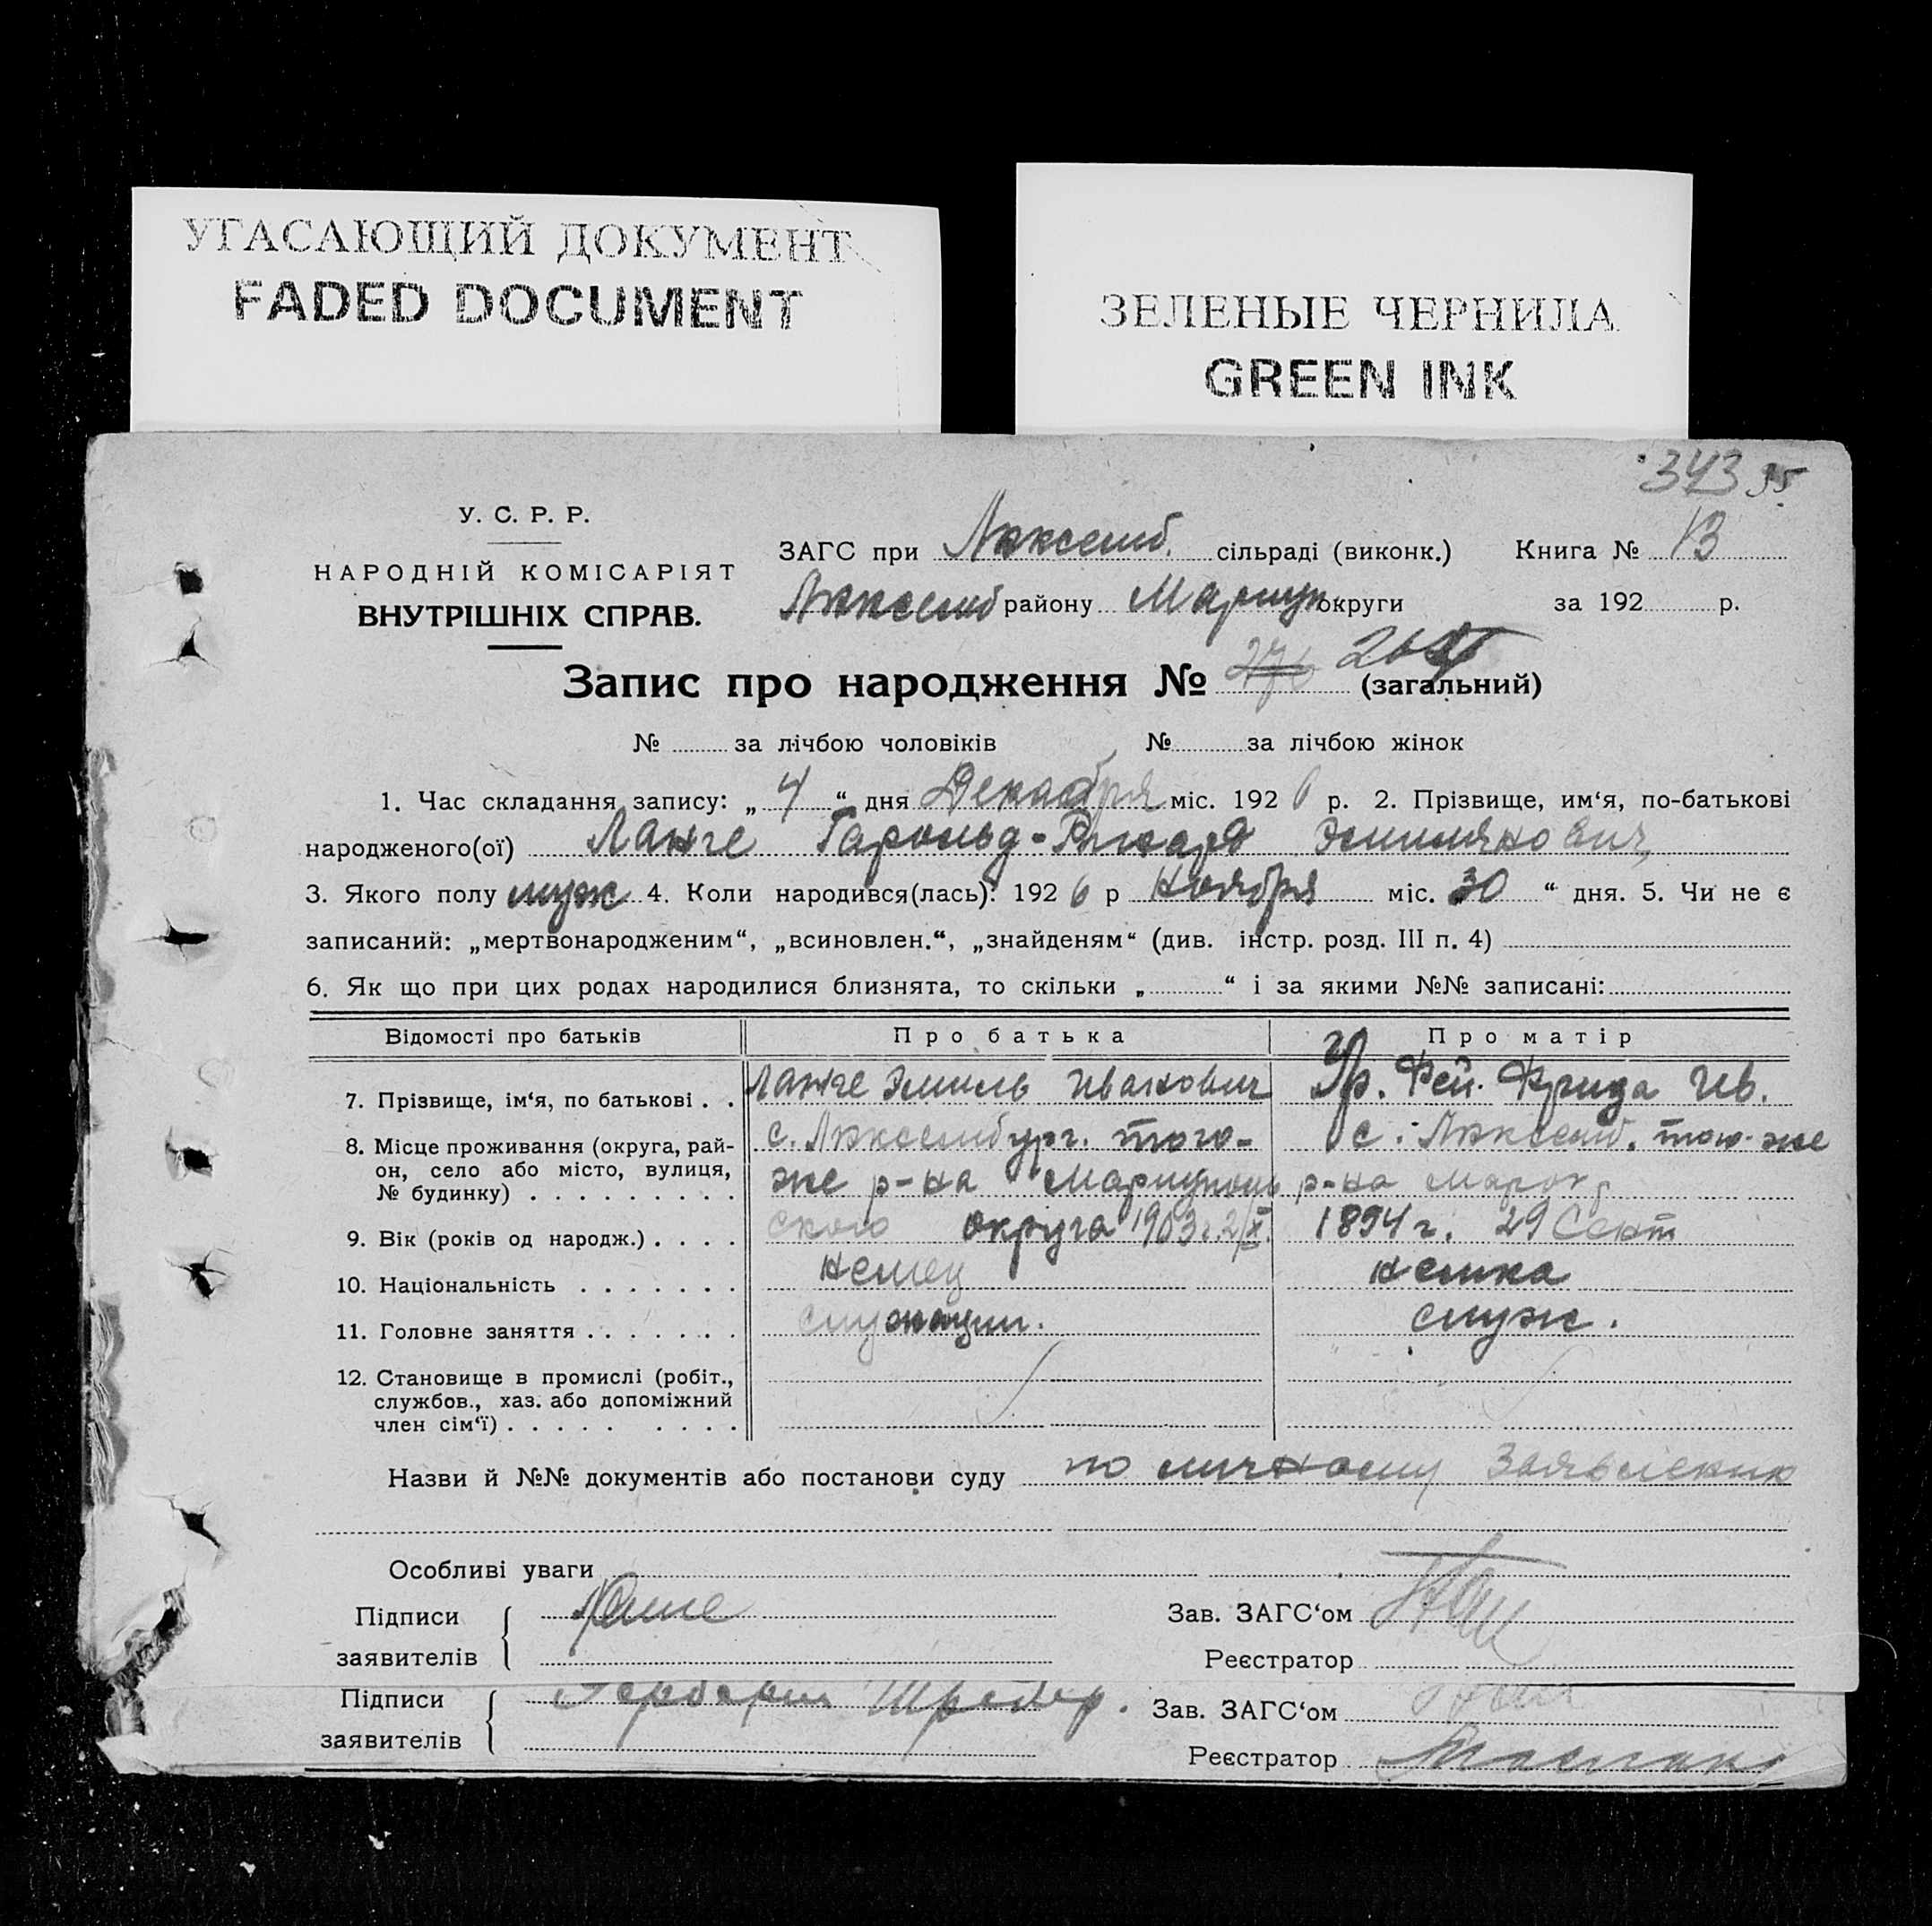 УГАСАЮЩИЙ ДОКУМЕНТ
FADED DOCUMENT
ЗЕЛЕНЫЕ ЧЕРНИЛА
GREEN INK
343 35
У. С. Р. Р.
НАРОДНІЙ КОМІСАРІЯТ
ВНУТРІШНІХ СПРАВ.
ЗАГС при Люксемб. сільраді (виконк.) Книга № 13
Люксемб району Мариуп округи за 192 р.
Запис про народження № 276 (загальний)
№ за лічбою чоловіків № за лічбою жінок
1. Час складання запису: „ 4 “ дня Декабря міс. 1926 р. 2. Прізвище, им‘я, по-батькові
народженого(ої) Ланге Гарольд-Рихард Эмильянович
3. Якого полу муж 4. Коли народився(лась): 1926 р Ноября міс. 30 “ дня. 5. Чи не є
записаний: „мертвонародженим“, „всиновлен.“, „знайденям“ (див. інстр. розд. III п. 4)
6. Як що при цих родах народилися близнята, то скільки „ “ і за якими №№ записані:
Відомості про батьків Про батька Про матір
7. Прізвище, ім‘я, по батькові . . Ланге Эмиль Иванович Гр. Фей. Фрида Ив.
8. Місце проживання (округа, рай- с. Люксембург. того- с. Люксемб. того-же
он, село або місто, вулиця, же р-на Мариуполь р-на Мар
№ будинку) . . . . . . . . .
9. Вік (років од народж.) . . . . ского округа 1903 г. 2/X. 1894 г. 29 Сент
10. Національність . . . . . . . немец немка
11. Головне заняття . . . . . . . служащий. служ.
12. Становище в промислі (робіт.,
службов., хаз. або допоміжний
член сім‘ї) . . . . . . . . .
Назви й №№ документів або постанови суду по личному заявлению
Особливі уваги
Підписи Ланге Зав. ЗАГС‘ом
заявителів Реєстратор
Підписи Герберт Зав. ЗАГС‘ом
заявителів Реєстратор